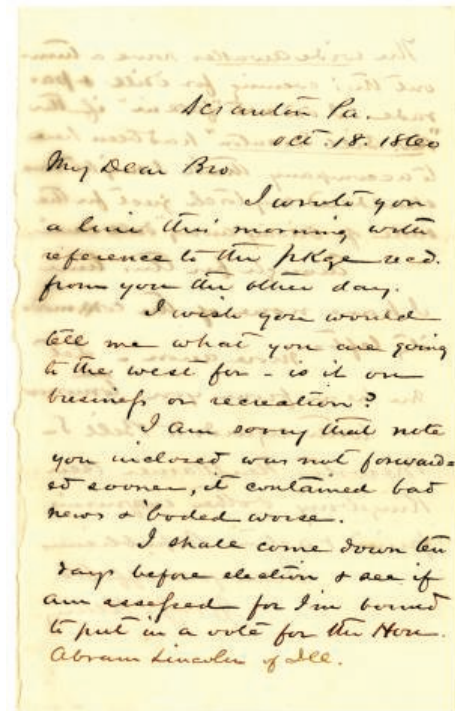 Scranton Pa.
Oct. 18. 1860
My Dear Bro
I wrote you
a line this morning with
reference to the pkge recd.
from you the other day.
I wish you would
tell me what you are going
to the west for - is it on
business or recreation?
I am sorry that note
you inclosed was not forward=
ed sooner, it contained bad
news & 'boded worse.
I shall come down ten
days before election & see if
am assessed for I'm bound
to put in a vote for the Hon.
Abram Lincoln of Ill.